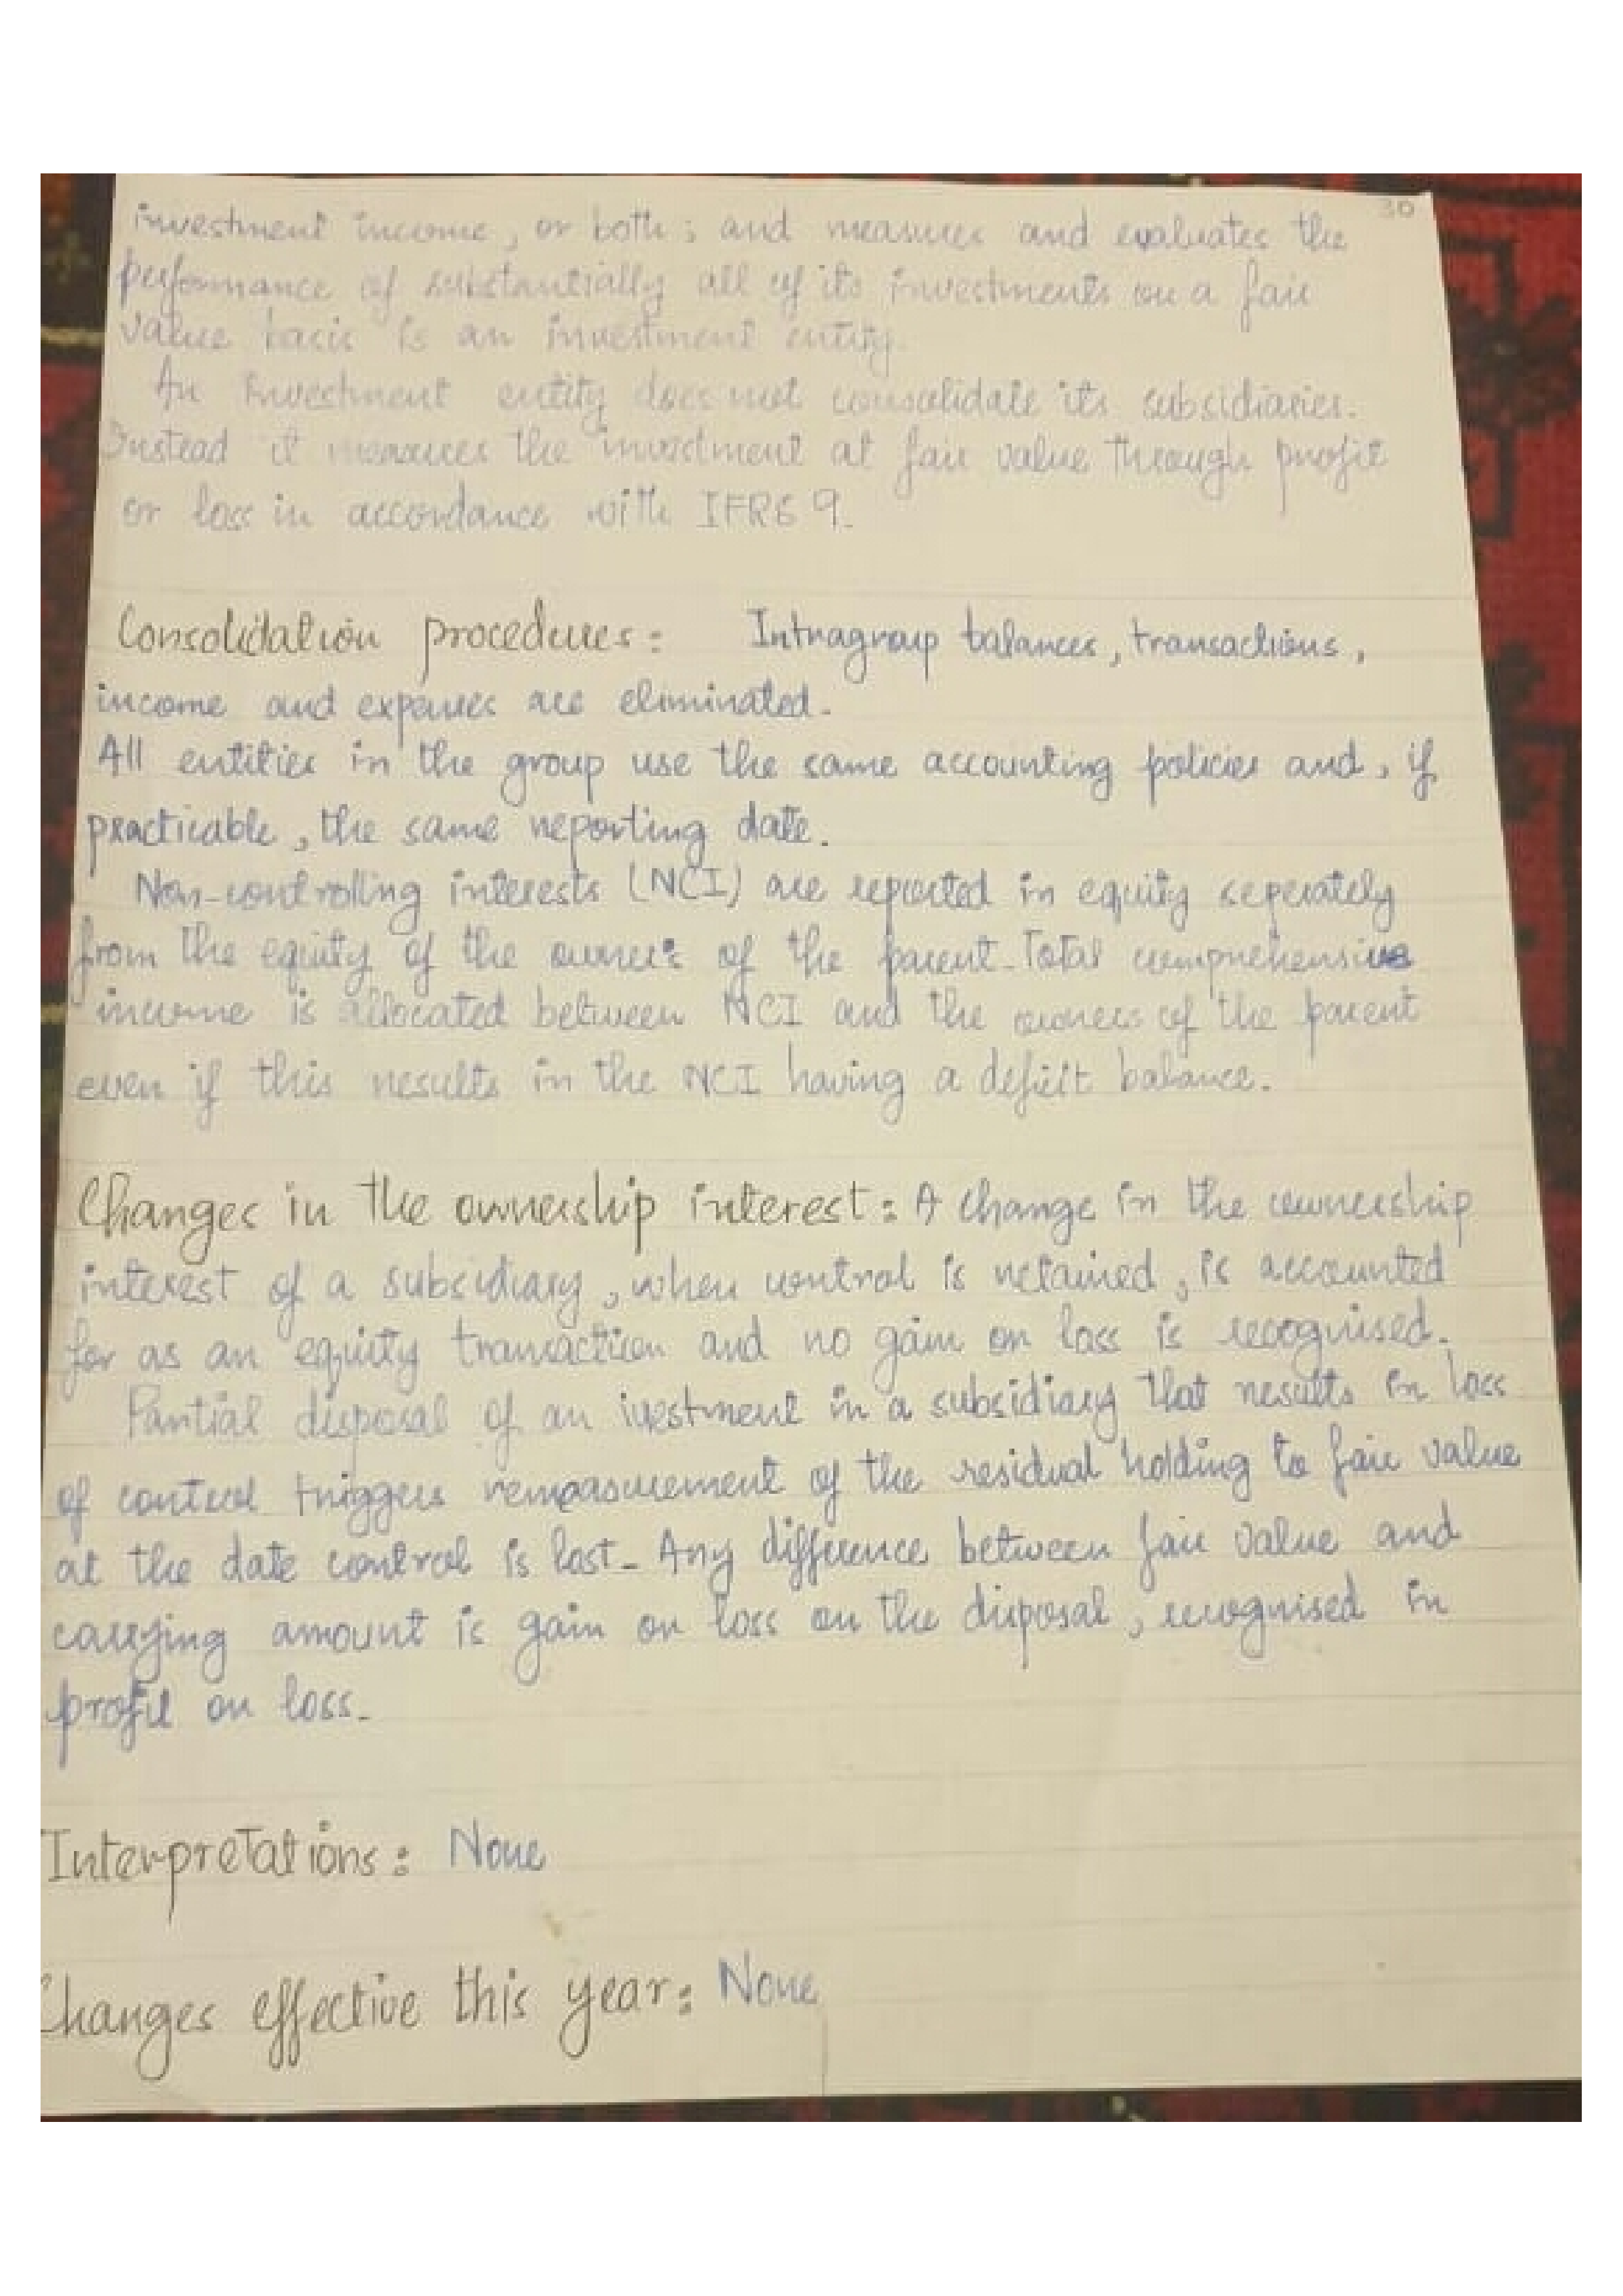 30
investment income, or both; and measures and evaluates the
performance of substantially all of its investments on a fair
value basis is an investment entity.
An investment entity does not consolidate its subsidiaries.
Instead it measures the investment at fair value through profit
or loss in accordance with IFRS 9.
Consolidation procedures: Intragroup balances, transactions,
income and expenses are eliminated.
All entities in the group use the same accounting policies and, if
practicable, the same reporting date.
Non-controlling interests (NCI) are reported in equity seperately
from the equity of the owner's of the parent. Total comprehensive
income is allocated between NCI and the owners of the parent
even if this results in the NCI having a deficit balance.
Changes in the ownership interest: A change in the ownership
interest of a subsidiary, when control is retained, is accounted
for as an equity transaction and no gain or loss is recognised.
Partial disposal of an ivestment in a subsidiary that results in loss
of control triggers remeasurement of the residual holding to fair value
at the date control is lost. Any difference between fair value and
carrying amount is gain or loss on the disposal, recognised in
profit or loss.
Interpretations: None
Changes effective this year: None